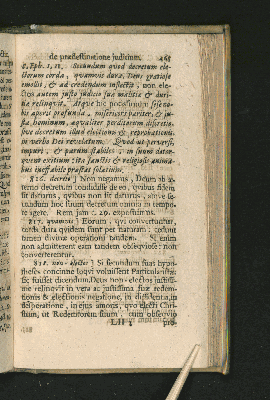 de prædestinatione judicium. 461
& Eph. 1, 11. Secundum quod decretum ele-
ctorum corda, quamvis dura, Deus gratiose
emollit, & ad credendum inflectit, non ele-
ctos autem justo judicio suæ malitiæ & duri-
tiæ relinquit. Atque hic potissimum sese no-
bis aperit profunda, misericors pariter, & ju-
sta hominum, æqualiter perditorum discretio,
sive decretum illud electionis & reprobationis
in verbo Dei revelatum. Quod ut perversi,
impuri, & parum stabiles in suum detor-
quent exitium ita sanctis & religiosis anima-
bus ineffabile præstat solatium.
816. decreto ] Non negamus, Deum in æ-
terno decreto condidisse de eo, quibus fidem
sit daturus, quibus non sit daturus, atque se-
cundum hoc suum decretum omnia in tempo-
re agere. Rem jam c. 29. expedivimus.
817. quamvis ] Eorum, qui convertuntur,
corda dura quidem sunt per naturam: cedunt
tamen divinæ operationi tandem. Si enim
non admitterent eam tandem obsequiose, non
converterentur.
818. non-electos ] Si secundum suas hypo-
theses concinne loqui voluissent Particularistæ
fuisset dicendum, Deus non-electos justissi-
me relinquit in vera ac justissima suæ redem-
tionis & electionis negatione, in diffidentia, in
desperatione, in ejus amoris, quo electi Chri-
stum, ut Redemtorem suum, cum obsequio
Lll 3 pro-